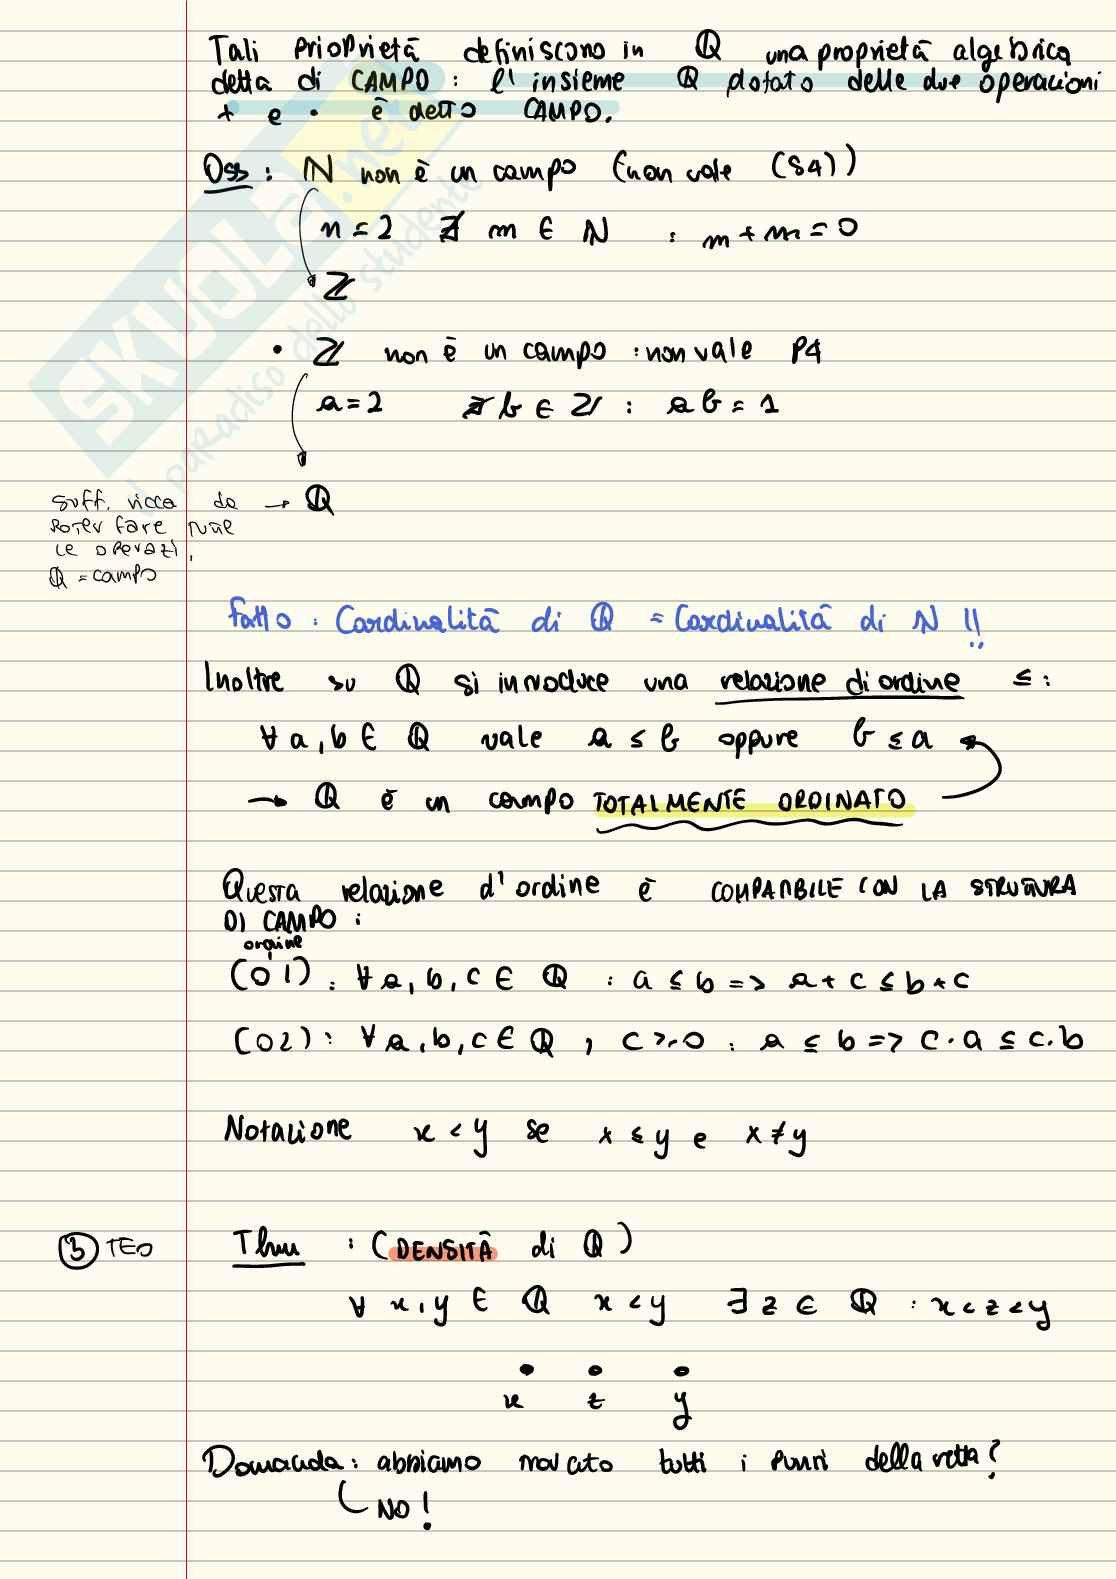 Tali Prioprietà definiscono in ℚ una proprietà algebrica
detta di CAMPO : l'insieme ℚ dotato delle due operazioni
+ e · è detto CAMPO.
Oss : ℕ non è un campo (non vale (S4))
n = 2 ∄ m ∈ ℕ : m + m = 0
ℤ
• ℤ non è un campo : non vale P4
a = 2 ∄ b ∈ ℤ : a b = 1
suff. ricca da → ℚ
poter fare tutte
le operazi.
ℚ = campo
fatto : Cardinalità di ℚ = Cardinalità di ℕ !!
Inoltre su ℚ si introduce una relazione di ordine ≤ :
∀ a, b ∈ ℚ vale a ≤ b oppure b ≤ a
→ ℚ è un campo TOTALMENTE ORDINATO
Questa relazione d'ordine è COMPATIBILE CON LA STRUTTURA
DI CAMPO :
ordine
(O1) : ∀ a, b, c ∈ ℚ : a ≤ b => a + c ≤ b + c
(O2) : ∀ a, b, c ∈ ℚ , c ≥ 0 : a ≤ b => c · a ≤ c · b
Notazione x < y se x ≤ y e x ≠ y
③ TEO Thm : (DENSITÀ di ℚ)
∀ x, y ∈ ℚ x < y ∃ z ∈ ℚ : x < z < y
x z y
Domanda : abbiamo marcato tutti i punti della retta?
NO !
SKUOLA.net
il paradiso dello studente